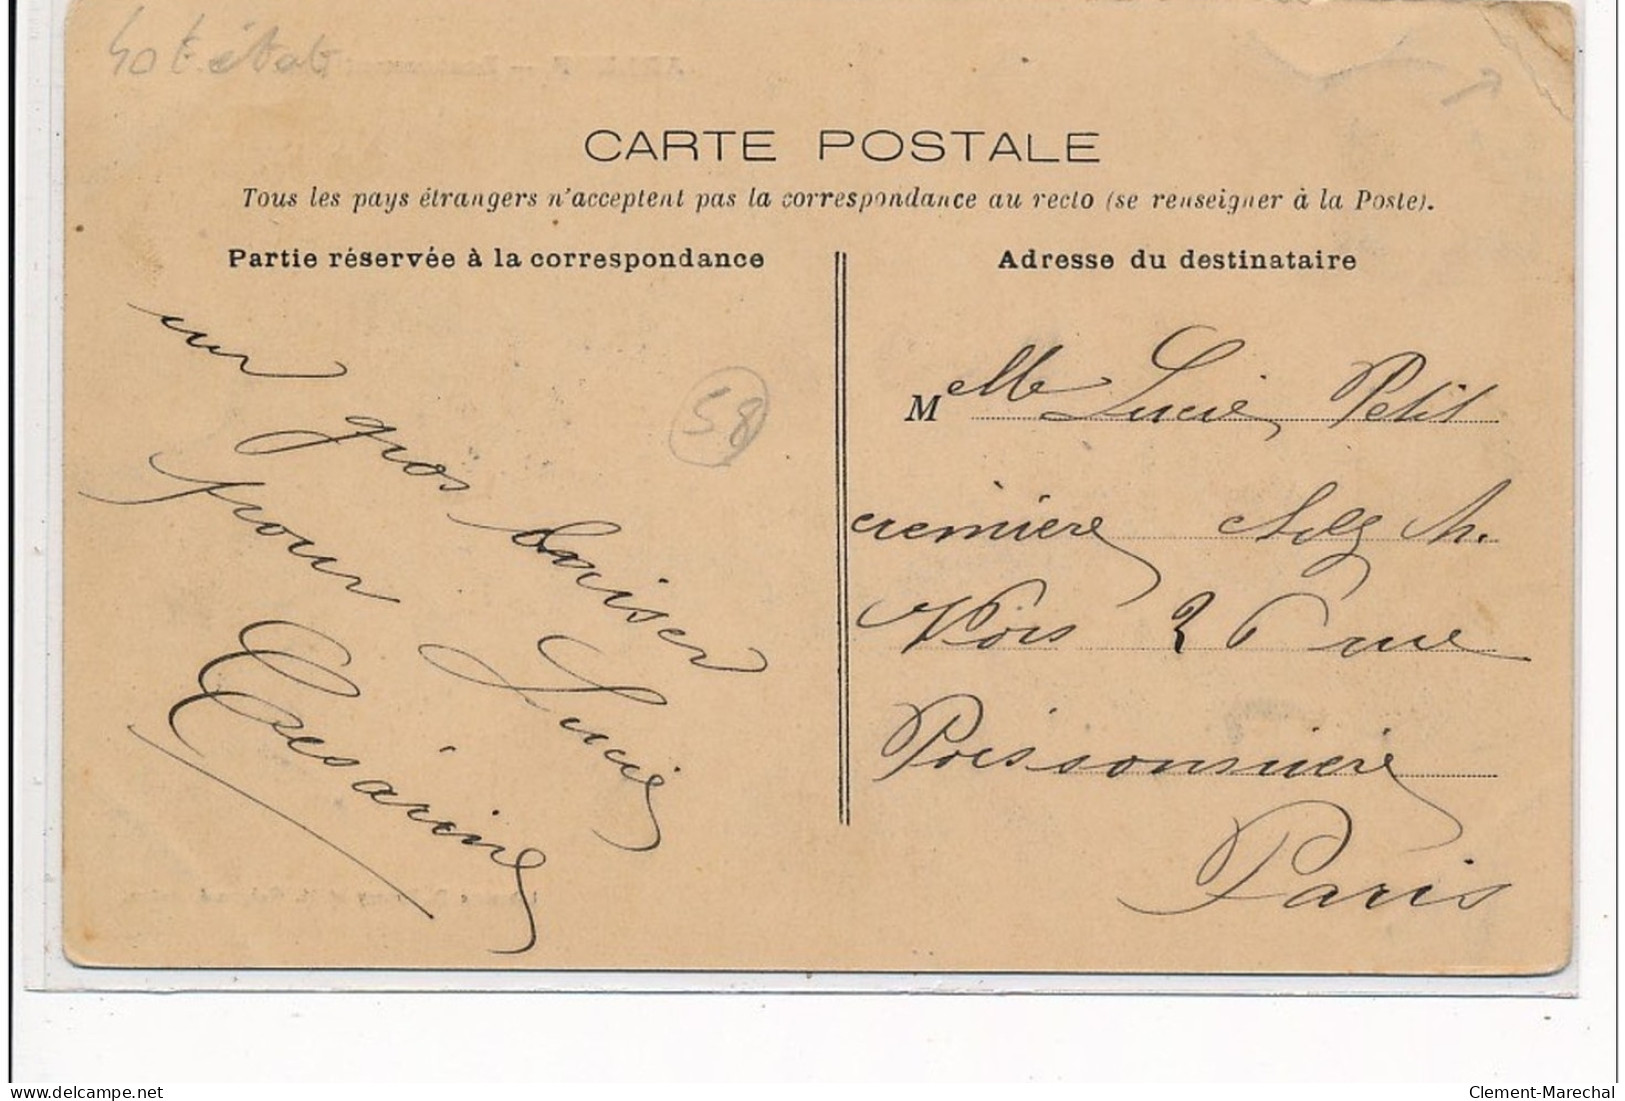 40 t. état
CARTE POSTALE
Tous les pays étrangers n'acceptent pas la correspondance au recto (se renseigner à la Poste).
Partie réservée à la correspondance
un gros baiser
pour Lucie
Césarine
58
Adresse du destinataire
Melle Lucie Petit
crémière chez M.
Nois 26 rue
Poissonnière
Paris
delcampe.net
Clement-Marechal